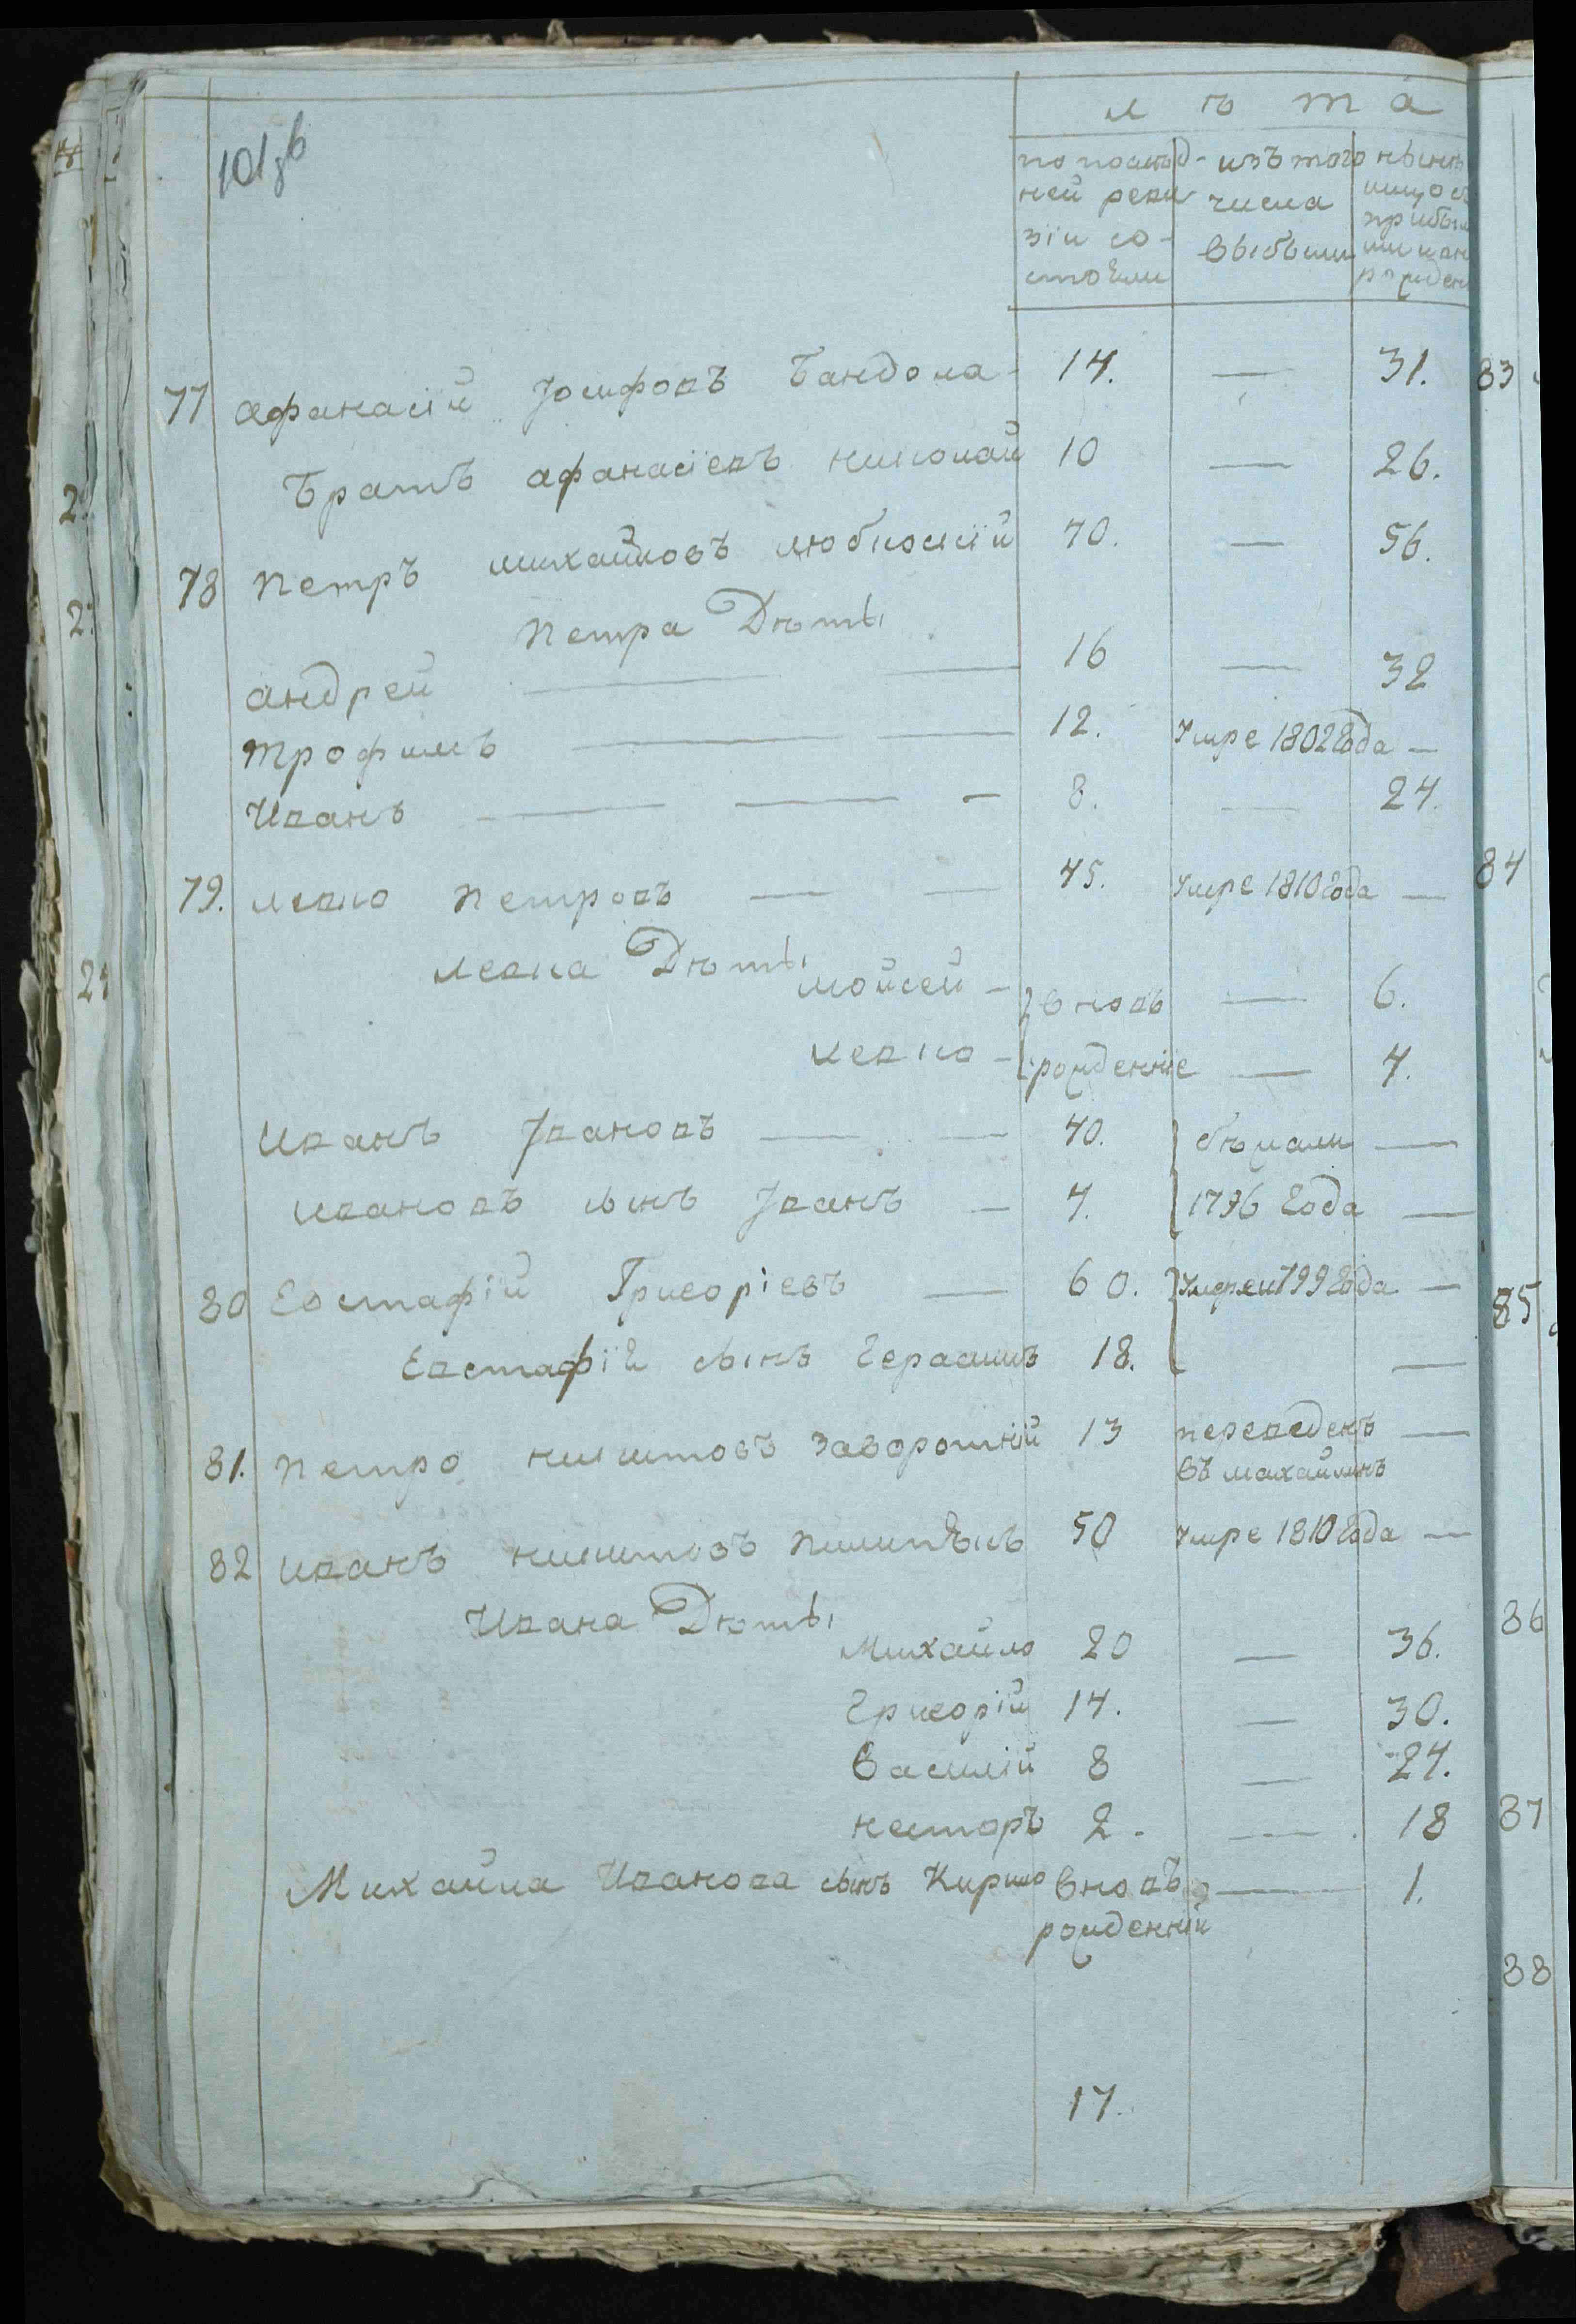 лѣта
по послѣд- изъ того нынѣ
ней реви числа
зіи со- выбыли
стояли
77 Афанасій Іосифовъ Бандола 14. — 31.
Братъ Афанасіевъ николай 10 — 26.
78 Петръ михайловъ 40. — 56.
Петра Дѣты
андрей — 16 — 32
трофимъ — 12. Умре 1802 года —
Иванъ — 8. — 24.
79. левко Петровъ — 45. Умре 1810 года —
левка Дѣты
мойсей — вновь — 6.
левко — рожденніе — 4.
Иванъ Івановъ — 40. бѣжали —
ивановъ сынъ Іванъ — 4. 1796 года —
80 Евстафій Григоріевъ — 60. 1799 года —
Евстафія сынъ Герасимъ 18. —
81. Петро никитовъ заворотній 13 переведенъ —
въ михайлинъ
82 иванъ никитовъ 50 Умре 1810 года —
Ивана Дѣты
Михайло 20 — 36.
Григорій 14. — 30.
Василій 8 — 24.
несторъ 2. — 18
Михайла Иванова сынъ Кирило вновь — 1.
рожденній
17.
83
84
85
86
87
88